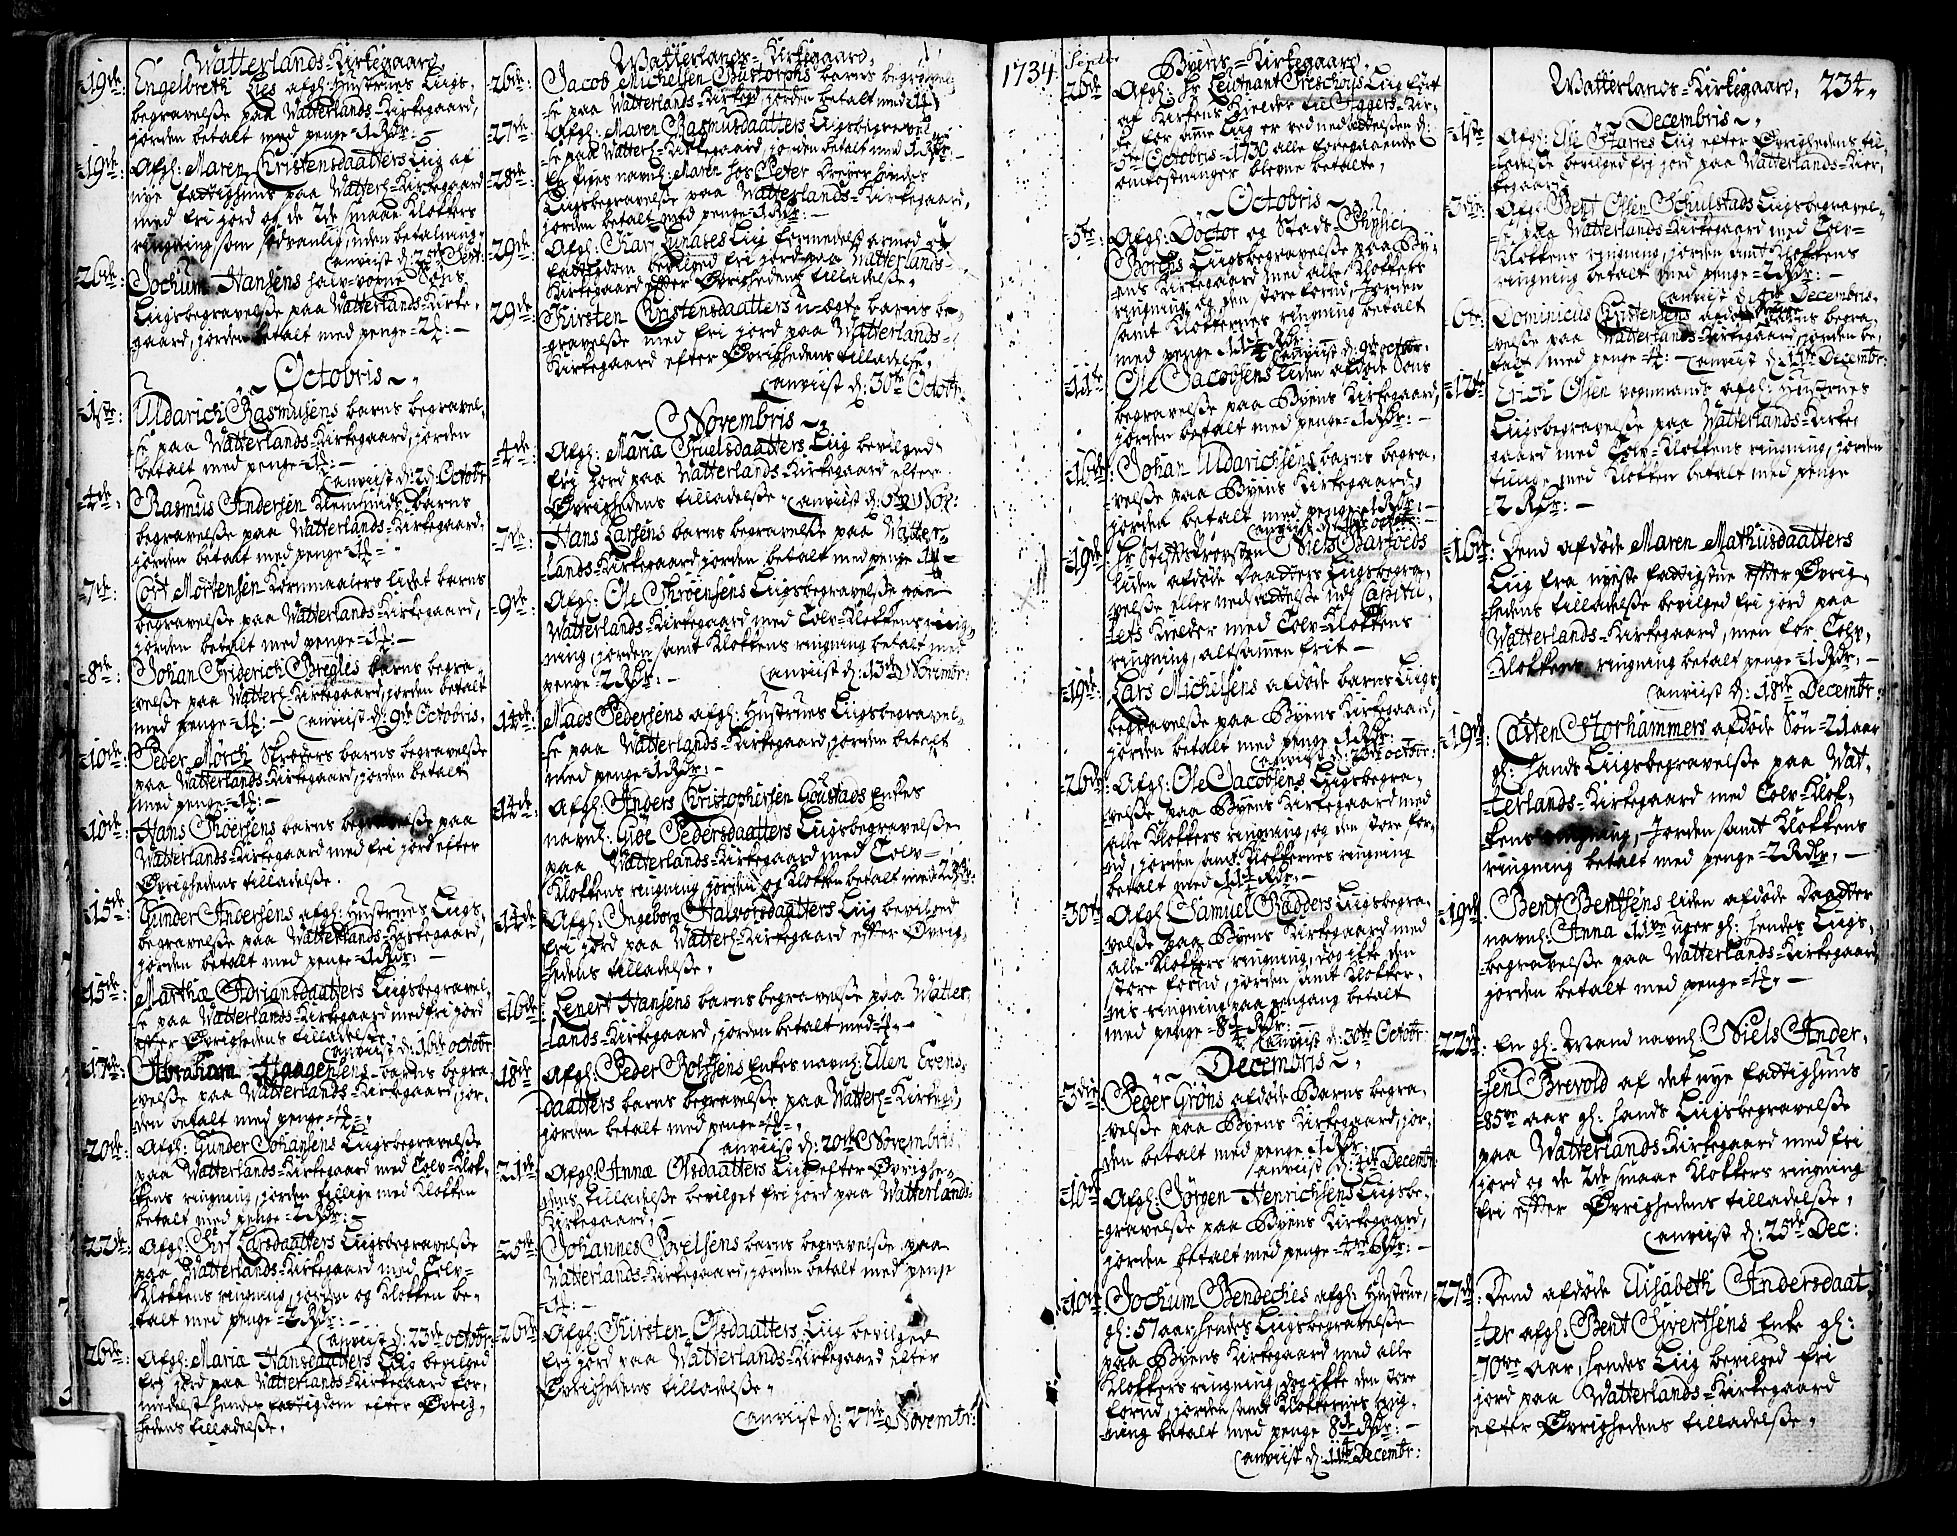 Watterlands-Kirkegaard,
19de: Engelbreth Lies afgl: Hustrues Liigs-
begravelse paa Watterlands-Kirkegaard,
jorden betalt med penge-1 Rdr: -
19de: Afgl: Maren Christensdaatters Liig af
nye fattighuus paa Watterl-Kirkegaard
med fri jord og de 2de smaae Klokkers
ringning som sædvanlig, uden betalning.
Anviist d: 25de Sept:
26de: Jochum Hansens halv-voxne Søns
Liigsbegravelse paa Watterlands-Kirke-
gaard, jorden betalt med penge
Octobris
1ste: Uldarich Rasmusens barns begravel-
se paa Watterlands-Kirkegaard, jorden
betalt med penge
Anviist d: 2d: Octobr
4de: Rasmus Andersen Kleinsmids barns
begravelse paa Watterlands-Kirkegaard,
jorden betalt med penge
7de: Cort Mortensen Kornmaalers lidet barns
begravelse paa Watterlands-Kirkegaard,
jorden betalt med penge
8de: Johan Friderich Bregles barns begra-
velse paa Watterl-Kirkegaard, jorden betalt
med penge Anviist d: 9de Octobris.
10de: Peder Mørch barns begravelse
paa Watterlands-Kirkegaard, jorden betalt
med penge
10de: Hans Thoersens barns begravelse paa
Watterlands-Kirkegaard med fri jord efter
Øvrighedens tilladelse.
15de: Gunder Andersens afgl: Hustrues Liigs-
begravelse paa Watterlands-Kirkegaard,
jorden betalt med penge-1 Rdr: -
15de: Marthæ Adriansdaatters Liigsbegravel-
se paa Watterlands-Kirkegaard med fri jord
efter Øvrighedens tilladelse
Anviist d: 16de octobr
17de: Abraham Haagensens barns begra-
velse paa Watterlands-Kirkegaard, jor-
den betalt med penge
20de: Afgl: Gunder Johansens Liigsbegravelse
paa Watterlands-Kirkegaard med Tolv-Klok-
kens ringning, jorden tillige med Klokken
betalt med penge-2 Rdr: -
22de: Afgl: Larsdaatters Liigsbegravelse
paa Watterlands-Kirkegaard med Tolv-
Klokkens ringning, jorden og Klokken be-
talt med penge-2 Rdr: -
Anviist d: 23de octobr:
26de: Afgl: Maria Hansdaatters Liig bevilged
frj jord paa Watterlands-Kirkegaard for-
medelst hendes fattigdom efter Øvrig-
hedens tilladelse.
Watterlands-Kirkegaard,
26de: Jacob Michelsen barns begravel-
se paa Watterlands-Kirkegd, jorden betalt med
27de: Afgl: Maren Rasmusdaatters Liigsbegravel-
se paa Watterl-Kirkegaard jorden betalt med 1 Rdr: -
28de: En Pige navnl: Maren hos Peter hendes
Liigsbegravelse paa Watterlands-Kirkegaard,
jorden betalt med penge-1 Rdr: -
29de: Afgl: Kari Liig formedelst armod og
fattigdom bevilged fri jord paa Watterlands-
Kirkegaard efter Øvrighedens tilladelse.
29de: Kirsten Christensdaatters u-ægte barns be-
gravelse med fri jord paa Watterlands-
Kirkegaard efter Øvrighedens tilladelse.
Anviist d: 30te Octobr
Novembris
4de: Afgl: Maria Truelsdaatters Liig bevilged
fri jord paa Watterlands-Kirkegaard efter
Øvrighedens tilladelse. Anviist d: Nov:
7de: Hans Larsens barns begravelse paa Watter-
lands-Kirkegaard jorden betalt med penge
9de: Afgl: Ole Throensens Liigsbegravelse paa
Watterlands-Kirkegaard med Tolv-Klokkens ring-
ning, jorden samt Klokkens ringning betalt med
penge-2 Rdr: - Anviist d: 13de Novembr:
14de: Mads Pedersens afgl: Hustrues Liigsbegravel-
se paa Watterlands-Kirkegaard, jorden betalt
med penge-1 Rdr: -
14de: Afgl: Anders Christophersen Goustads Enkes
navnl: Pedersdaatters Liigsbegravelse
paa Watterlands-Kirkegaard med Tolv-
Klokkens ringning, jorden og Klokken betalt med 2 Rdr:
14de: Afgl: Ingeborg Halvorsdaatters Liig bevilged
fri jord paa Watterl-Kirkegaard efter Øvrig-
hedens tilladelse.
16de: Lenert Hansens barns begravelse paa Watter-
lands-Kirkegaard, jorden betalt med
18de: Afgl: Peder Rolfsens Enkes navnl: Ellen Evens-
daatters barns begravelse paa Watterl-Kirkegd,
jorden betalt med penge
Anviist d: 20de Novembris.
21de: Afgl: Annæ Olsdaatters Liig efter Øvrighe-
dens tilladelse bevilget fri jord paa Watterlands-
Kirkegaard. -
25de: Johannes Povelsens barns begravelse paa
Watterlands-Kirkegaard, jorden betalt med penge
26de: Afgl: Kirsten Olsdaatters Liig bevilged
frj jord paa Watterlands-Kirkegaard efter
Øvrighedens tilladelse.
Anviist d: 27de Novembr:
1734 Septbr
Byens-Kirkegaard,
26de: Afgl: Hr Leutnant Liig ført
af Kirkens Kielder til Aggers-Kir-
ke, for denne Liig er ved nedsættelsen d:
5te Octobris-1730 alle foregaaende
omkostninger blevne betalte.
Octobris
5te: Afgl: Doctor og Stads-Physici
Borchs Liigsbegravelse paa By-
ens Kirkegaard med alle Klokkers
ringning og den store forud, Jorden
samt Klokkernes ringning betalt
med penge 11 1/4 Rdr:
Anviist d: 9de octobr.
11te: Ole Jacobsens liden afdøde Søns
begravelse paa Byens Kirkegaard,
jorden betalt med penge-1 Rdr: -
16de: Johan Uldarichsens barns begra-
velse paa Byens Kirkegaard,
jorden betalt med penge-1 Rdr: -
Anviist d: octobr:
19de: Hr Stiftsprovsten Niels Bartoeds
liden afdøde Daatters Liigsbegra-
velse eller nedsættelse udj Capitu-
lets Kielder med Tolv-Klokkens
ringning, altsammen frit -
19de: Lars Michelsens afdøde barns Liigs-
begravelse paa Byens Kirkegaard,
jorden betalt med penge 1 Rdr:
Anviist d: octobr:
26de: Afgl: Ole Jacobsens Liigsbegra-
velse paa Byens Kirkegaard med
alle Klokkers ringning, og den store for-
ud, jorden samt Klokkernes ringning
betalt med 11 1/4 Rdr: -
30te: Afgl: Samuel Radders Liigsbegra-
velse paa Byens Kirkegaard med
alle Klokkers ringning, dog ikke den
store forud, jorden samt Klokker-
nes ringning paa engang betalt
med penge-8 1/4 Rdr:
Anviist d: 30te Octobr:
Decembris
3die: Peder Grøns afdøde Barns begra-
velse paa Byens Kirkegaard, jor-
den betalt med penge 1 Rdr:
Anviist d: Decembr
10de: Afgl: Jørgen Henrichsens Liigsbe-
gravelse paa Byens Kirkegaard,
jorden betalt med penge Rdr: -
10de: Jochum Bendeches afgl: Hustrue,
gl: 57 aar, hendes Liigsbegravelse
paa Byens Kirkegaard med alle
Klokkers ringning, dog ikke den store
forud, jorden samt Klokkernes ring-
ning betalt med penge 8 1/4 Rdr: -
Anviist d: 11te Decembr:
Watterlands-Kirkegaard, 234.
Decembris
1ste: Afgl: Ole Liig efter Øvrighedens til-
ladelse bevilged fri jord paa Watterlands-Kir-
kegaard.
3die: Afgl: Bent Olsen Schulstads Liigsbegravel-
se paa Watterlands-Kirkegaard med Tolv-
Klokkens ringning, jorden samt Klokkens
ringning betalt med penge-2 Rdr: -
Anviist d: Decembris.
6te: Dominicus Christensens afdøde barns begra-
velse paa Watterlands-Kirkegaard, jorden be-
talt med penge Anviist d: 11te Decembr:
12te: Erich Olsen vognmands afgl: Hustrues
Liigsbegravelse paa Watterlands-Kirke-
gaard med Tolv-Klokkens ringning, jorden
tillige med Klokken betalt med penge
2 Rdr: -
16de: Dend afdøde Maren Mathisdaatters
Liig fra nyeste fattigstue efter Øvrig-
hedens tilladelse bevilged fri jord paa
Watterlands-Kirkegaard, men for Tolv-
Klokkens ringning betalt penge-1 Rdr: -
Anviist d: 18de Decembr:
19de: Casten Storhammers afdøde Søn-21 aar
gl: hands Liigsbegravelse paa Wat-
terlands-Kirkegaard med Tolv-Klok-
kens ringning, Jorden samt Klokkens
ringning betalt med penge-2 Rdr, -
19de: Bent Bentsens liden afdøde Daatter
navnl: Anna 11ve uger gl: hendes Liigs-
begravelse paa Watterlands-Kirkegaard
jorden betalt med penge
22de: En gl: Mand navnl: Niels Ander-
sen Brevold af det nye fattighuus
85ve aar gl: hands Liigsbegravelse
paa Watterlands-Kirkegaard med fri
jord og de 2de smaae Klokkers ringning
fri efter Øvrighedens tilladelse.
Anviist d: 25de Dec:
27de: Dend afdøde Elisabeth Andersdaat-
ter afgl: Bent Sivertsens Enke gl:
70ve aar, hendes Liig bevilged fri
jord paa Watterlands-Kirkegaard
efter Øvrighedens tilladelse.